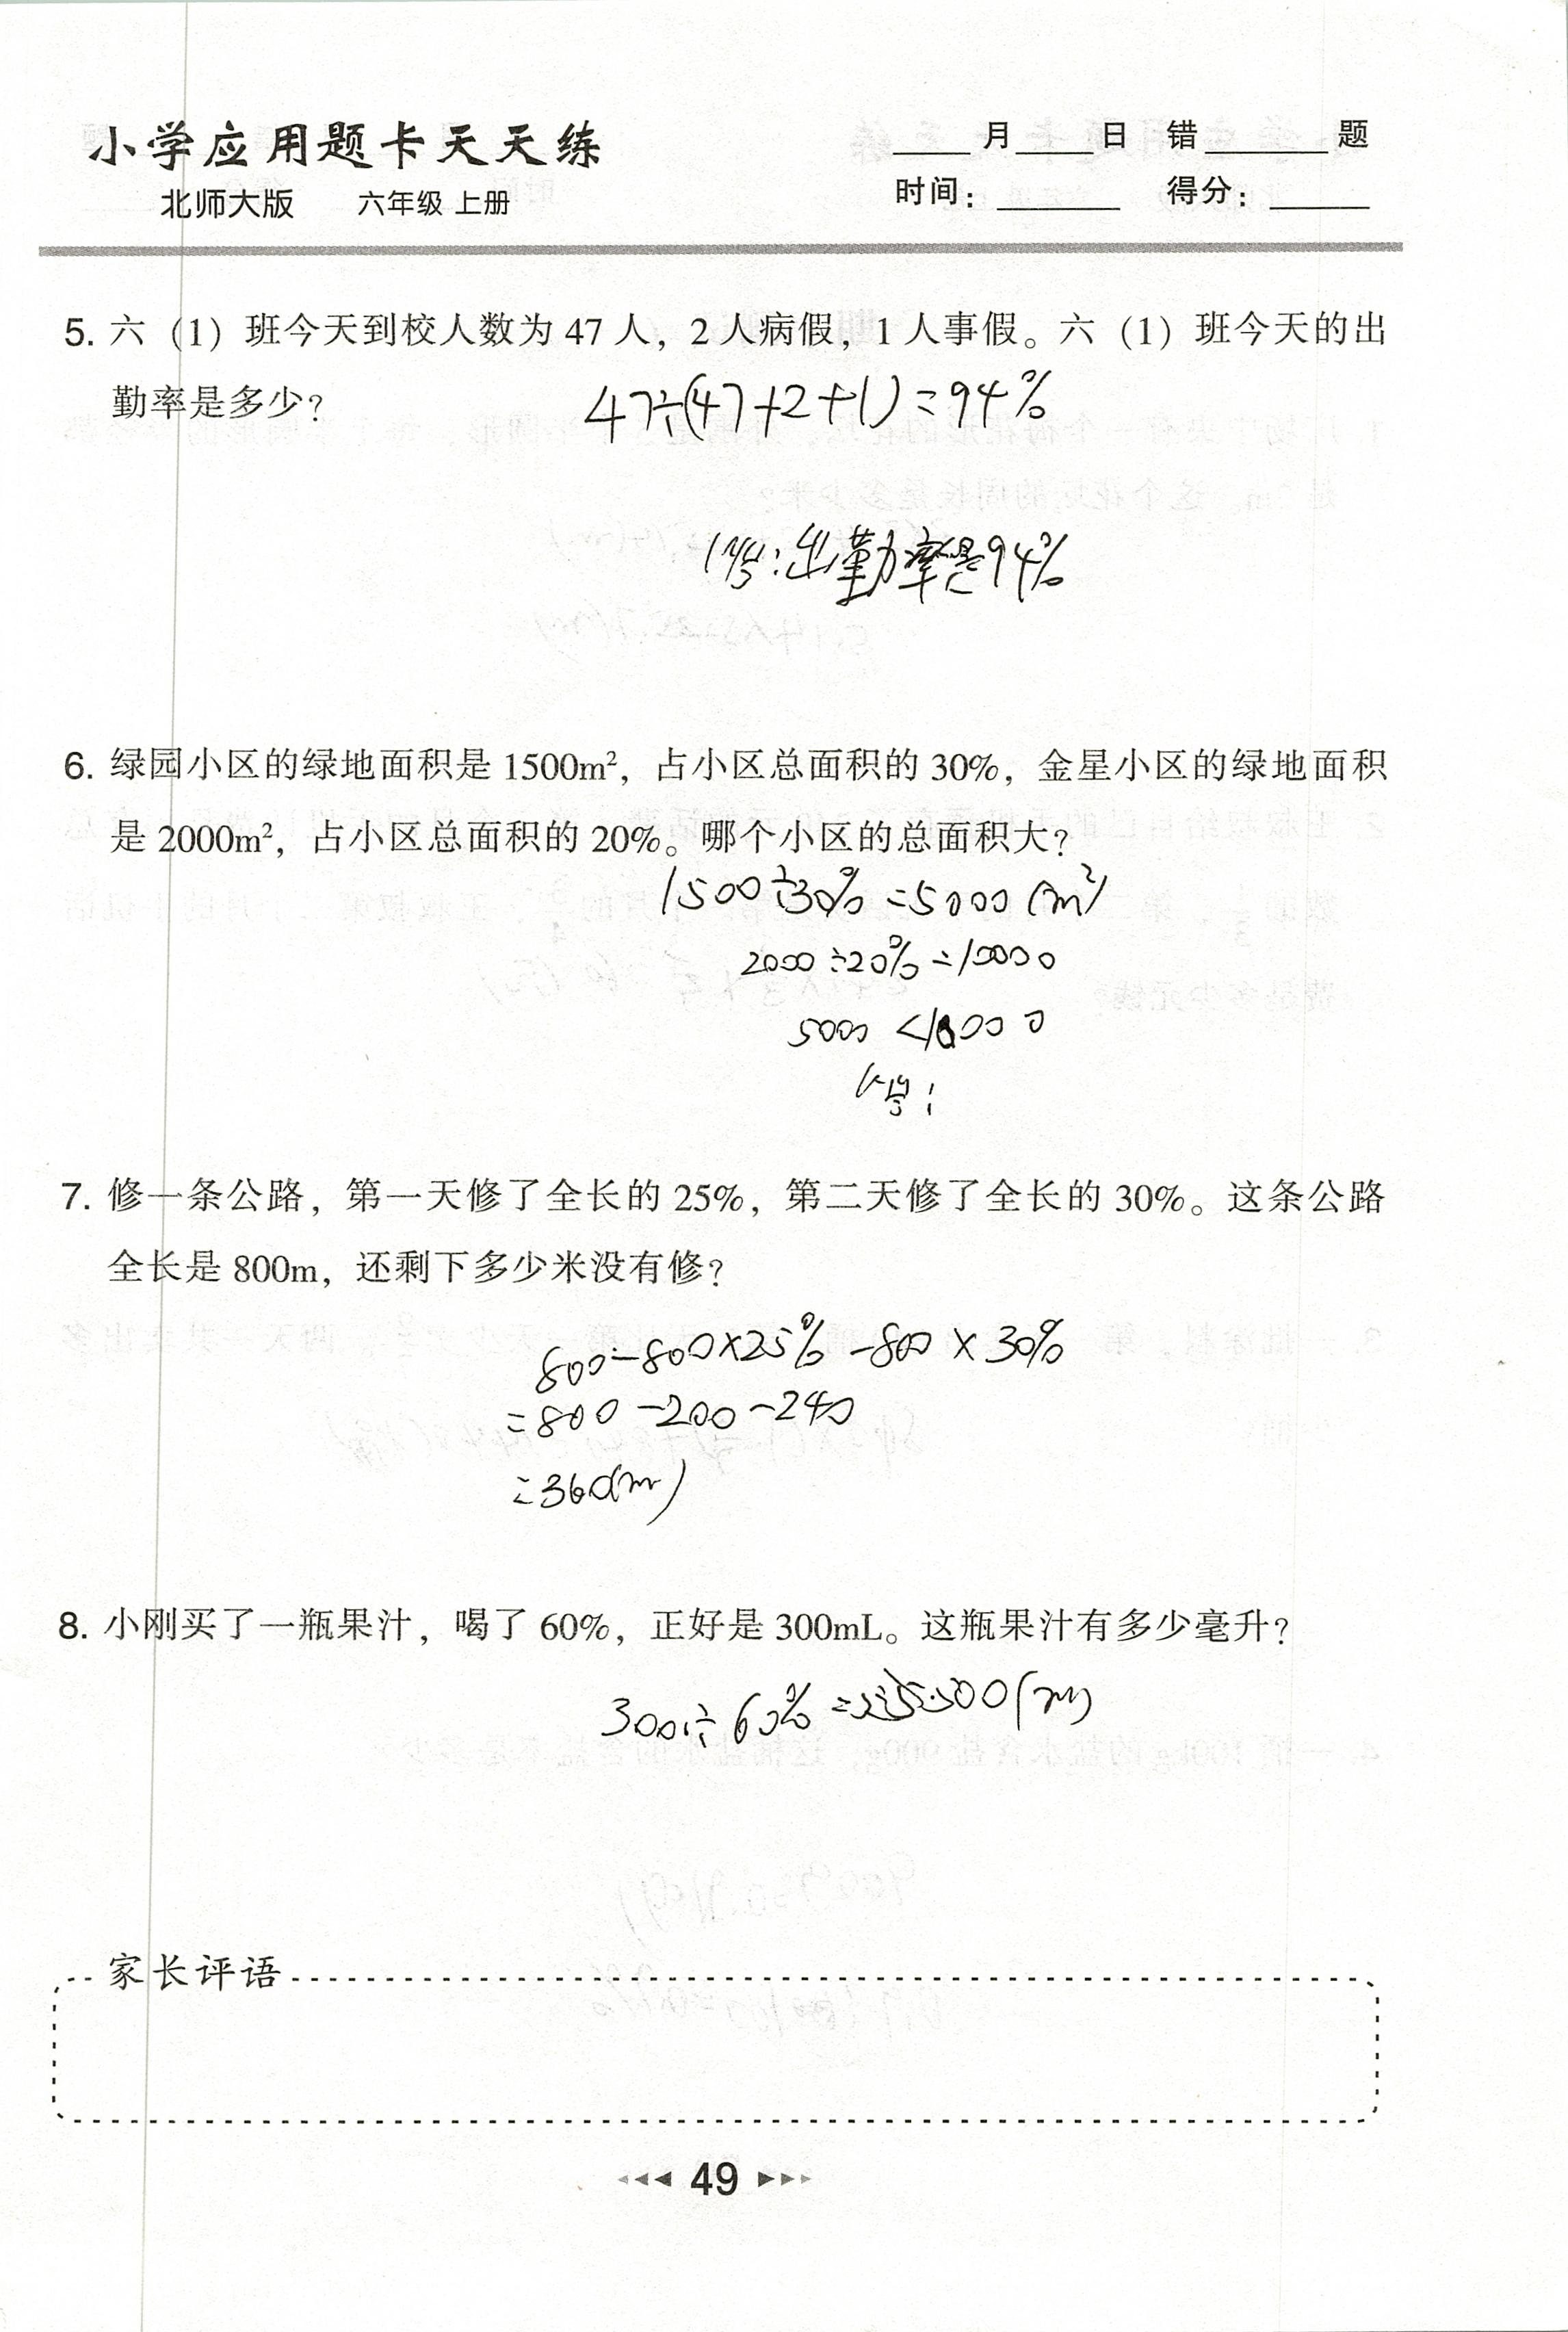 小学应用题卡天天练
北师大版 六年级 上册
____月____日 错______题
时间：______ 得分：_____
5. 六（1）班今天到校人数为 47 人，2 人病假，1 人事假。六（1）班今天的出
勤率是多少？
47÷(47+2+1)=94%
答:出勤率是94%
6. 绿园小区的绿地面积是 1500m²，占小区总面积的 30%，金星小区的绿地面积
是 2000m²，占小区总面积的 20%。哪个小区的总面积大？
1500÷30%=5000(m²)
2000÷20%=10000
5000<10000
答:
7. 修一条公路，第一天修了全长的 25%，第二天修了全长的 30%。这条公路
全长是 800m，还剩下多少米没有修？
800-800×25%-800×30%
=800-200-240
=360(m)
8. 小刚买了一瓶果汁，喝了 60%，正好是 300mL。这瓶果汁有多少毫升？
300÷60%=500
家长评语
49